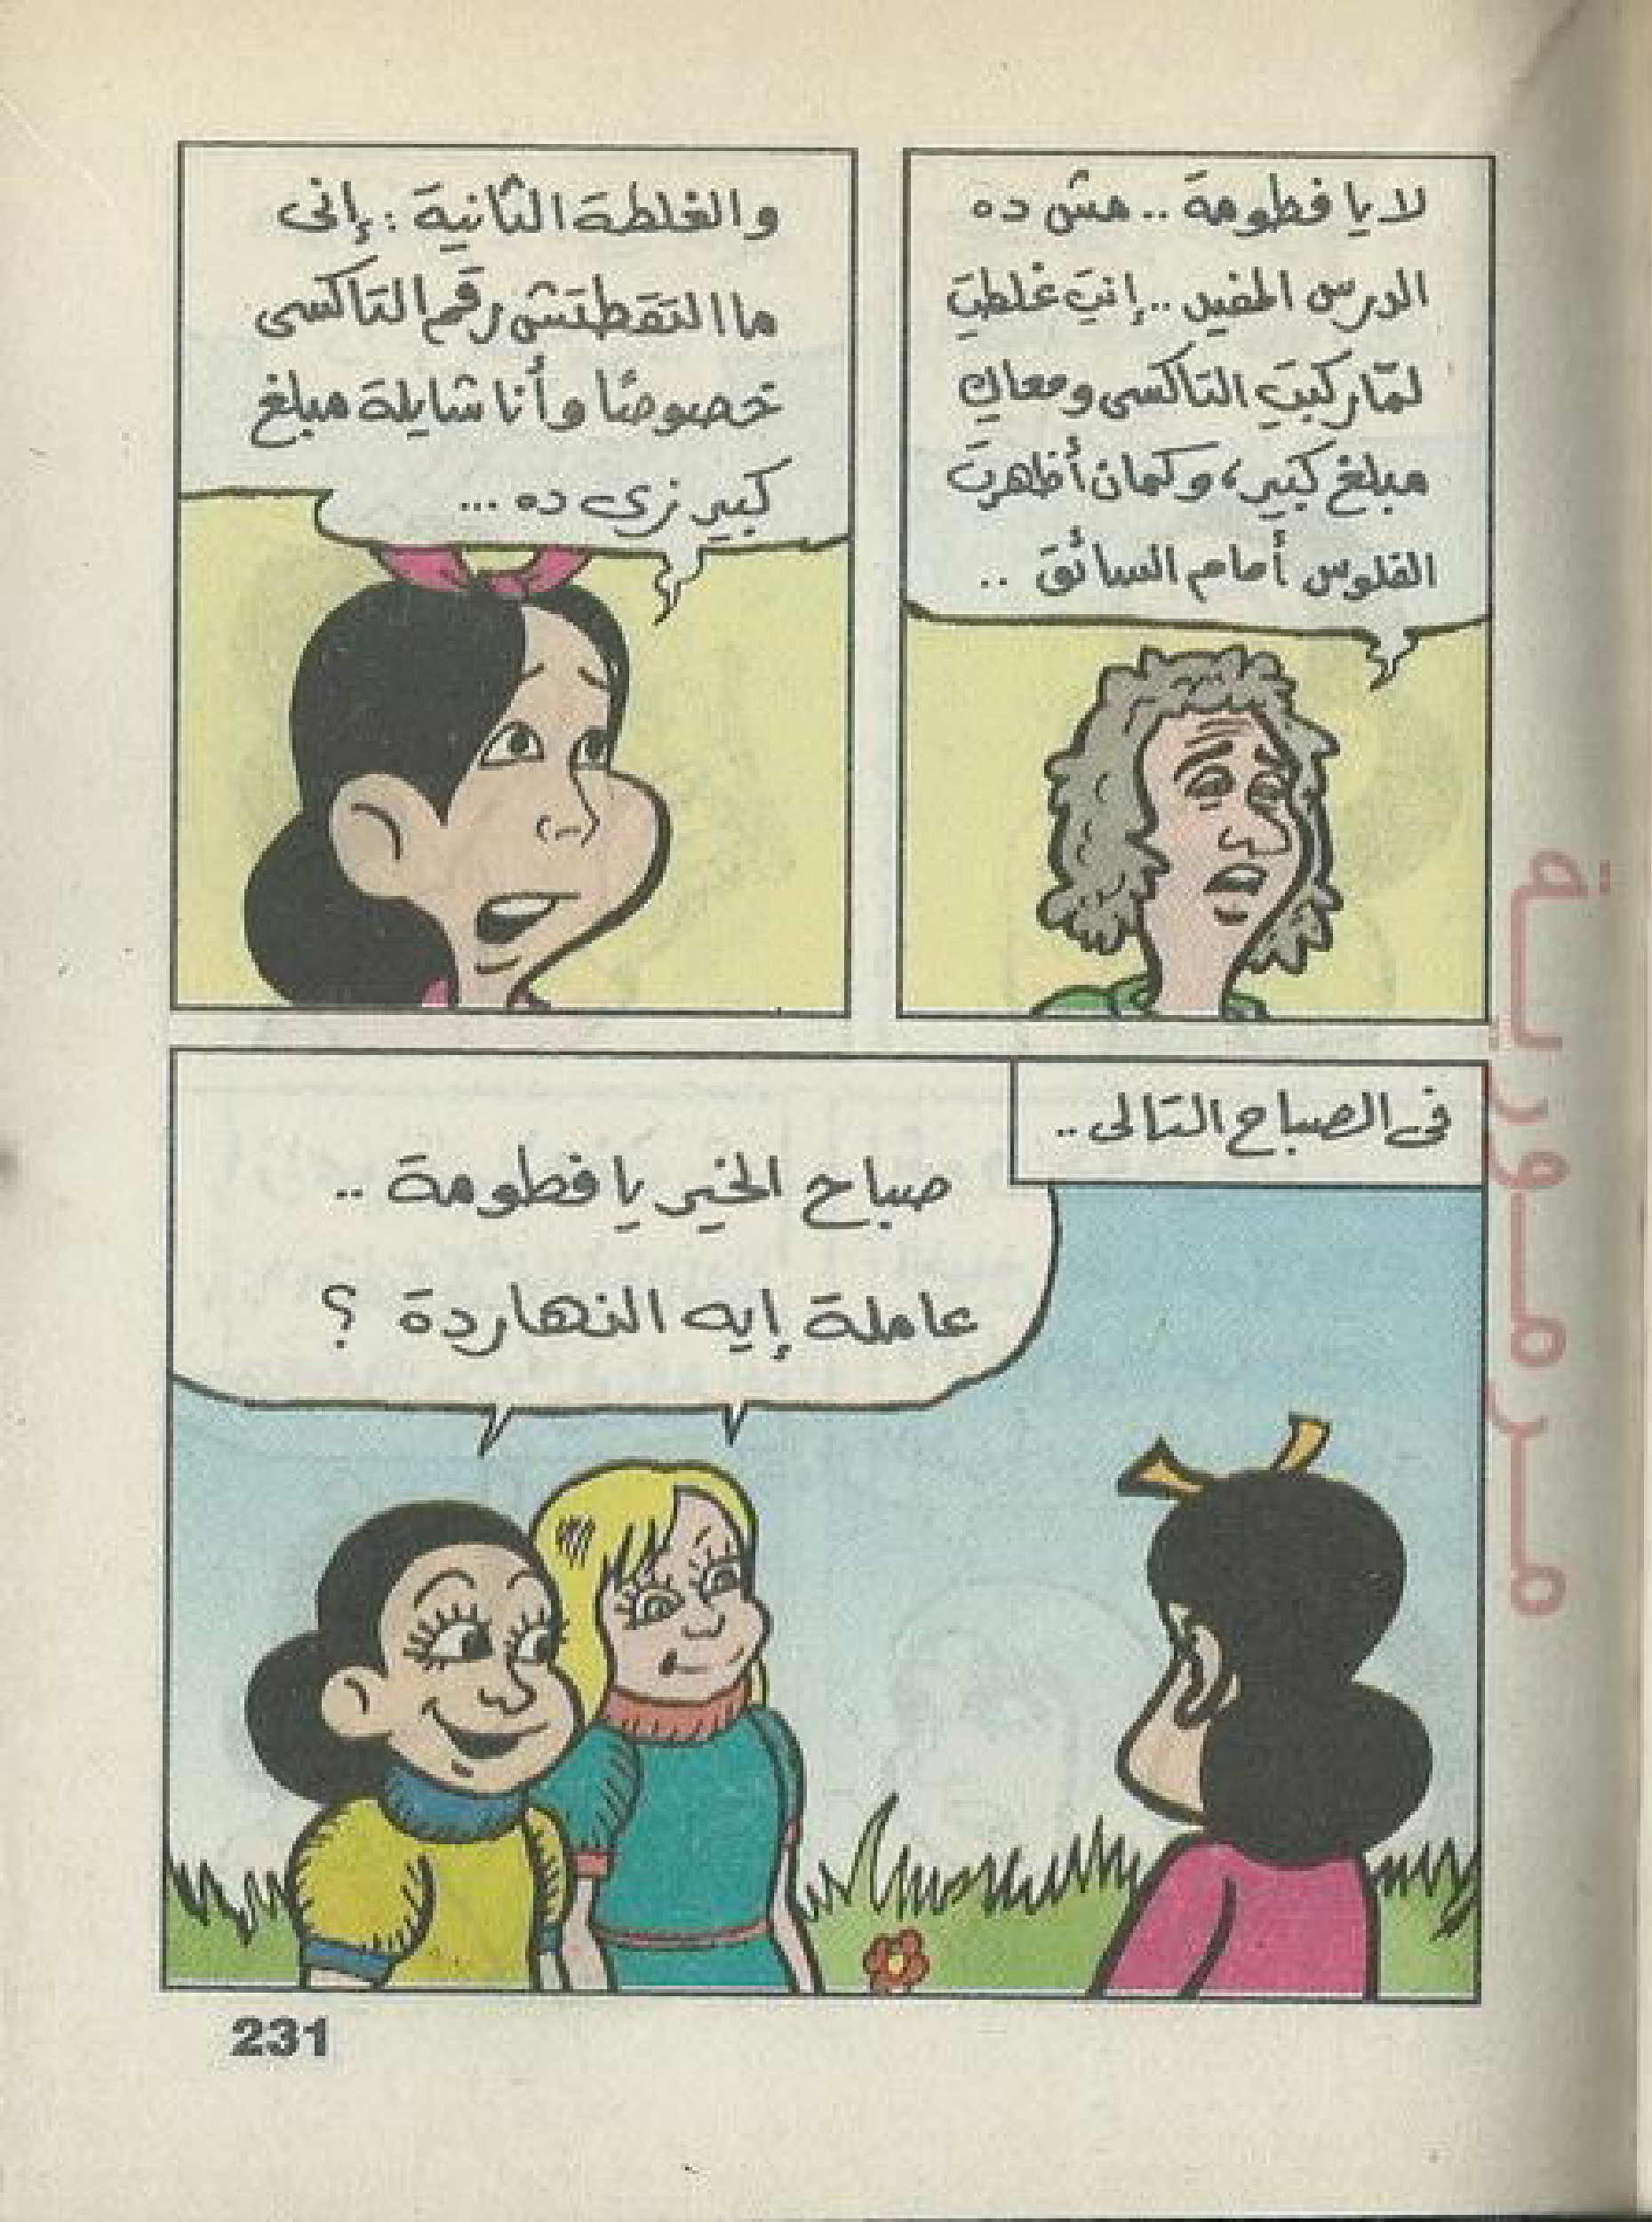 لا يا فطومة .. مش ده
الدرس المفيد .. إنتِ غلطتِ
لمّا ركبتِ التاكسى ومعاكِ
مبلغ كبير، وكمان أظهرتِ
الفلوس أمام السائق ..
والغلطة الثانية : إنى
ما التقطتش رقم التاكسى
خصوصًا وأنا شايلة مبلغ
كبير زى ده ...
فى الصباح التالى ..
صباح الخير يا فطومة ..
عاملة إيه النهاردة ؟
231
مرمورية